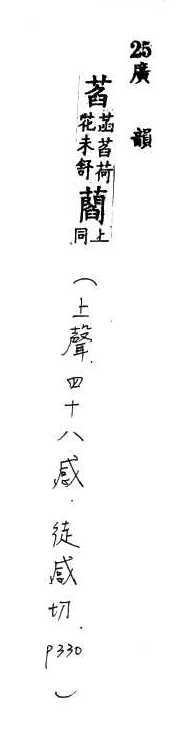 25廣韻
萏菡萏荷花未舒𧂄上同
（上聲.四十八感.徒感切.P330）